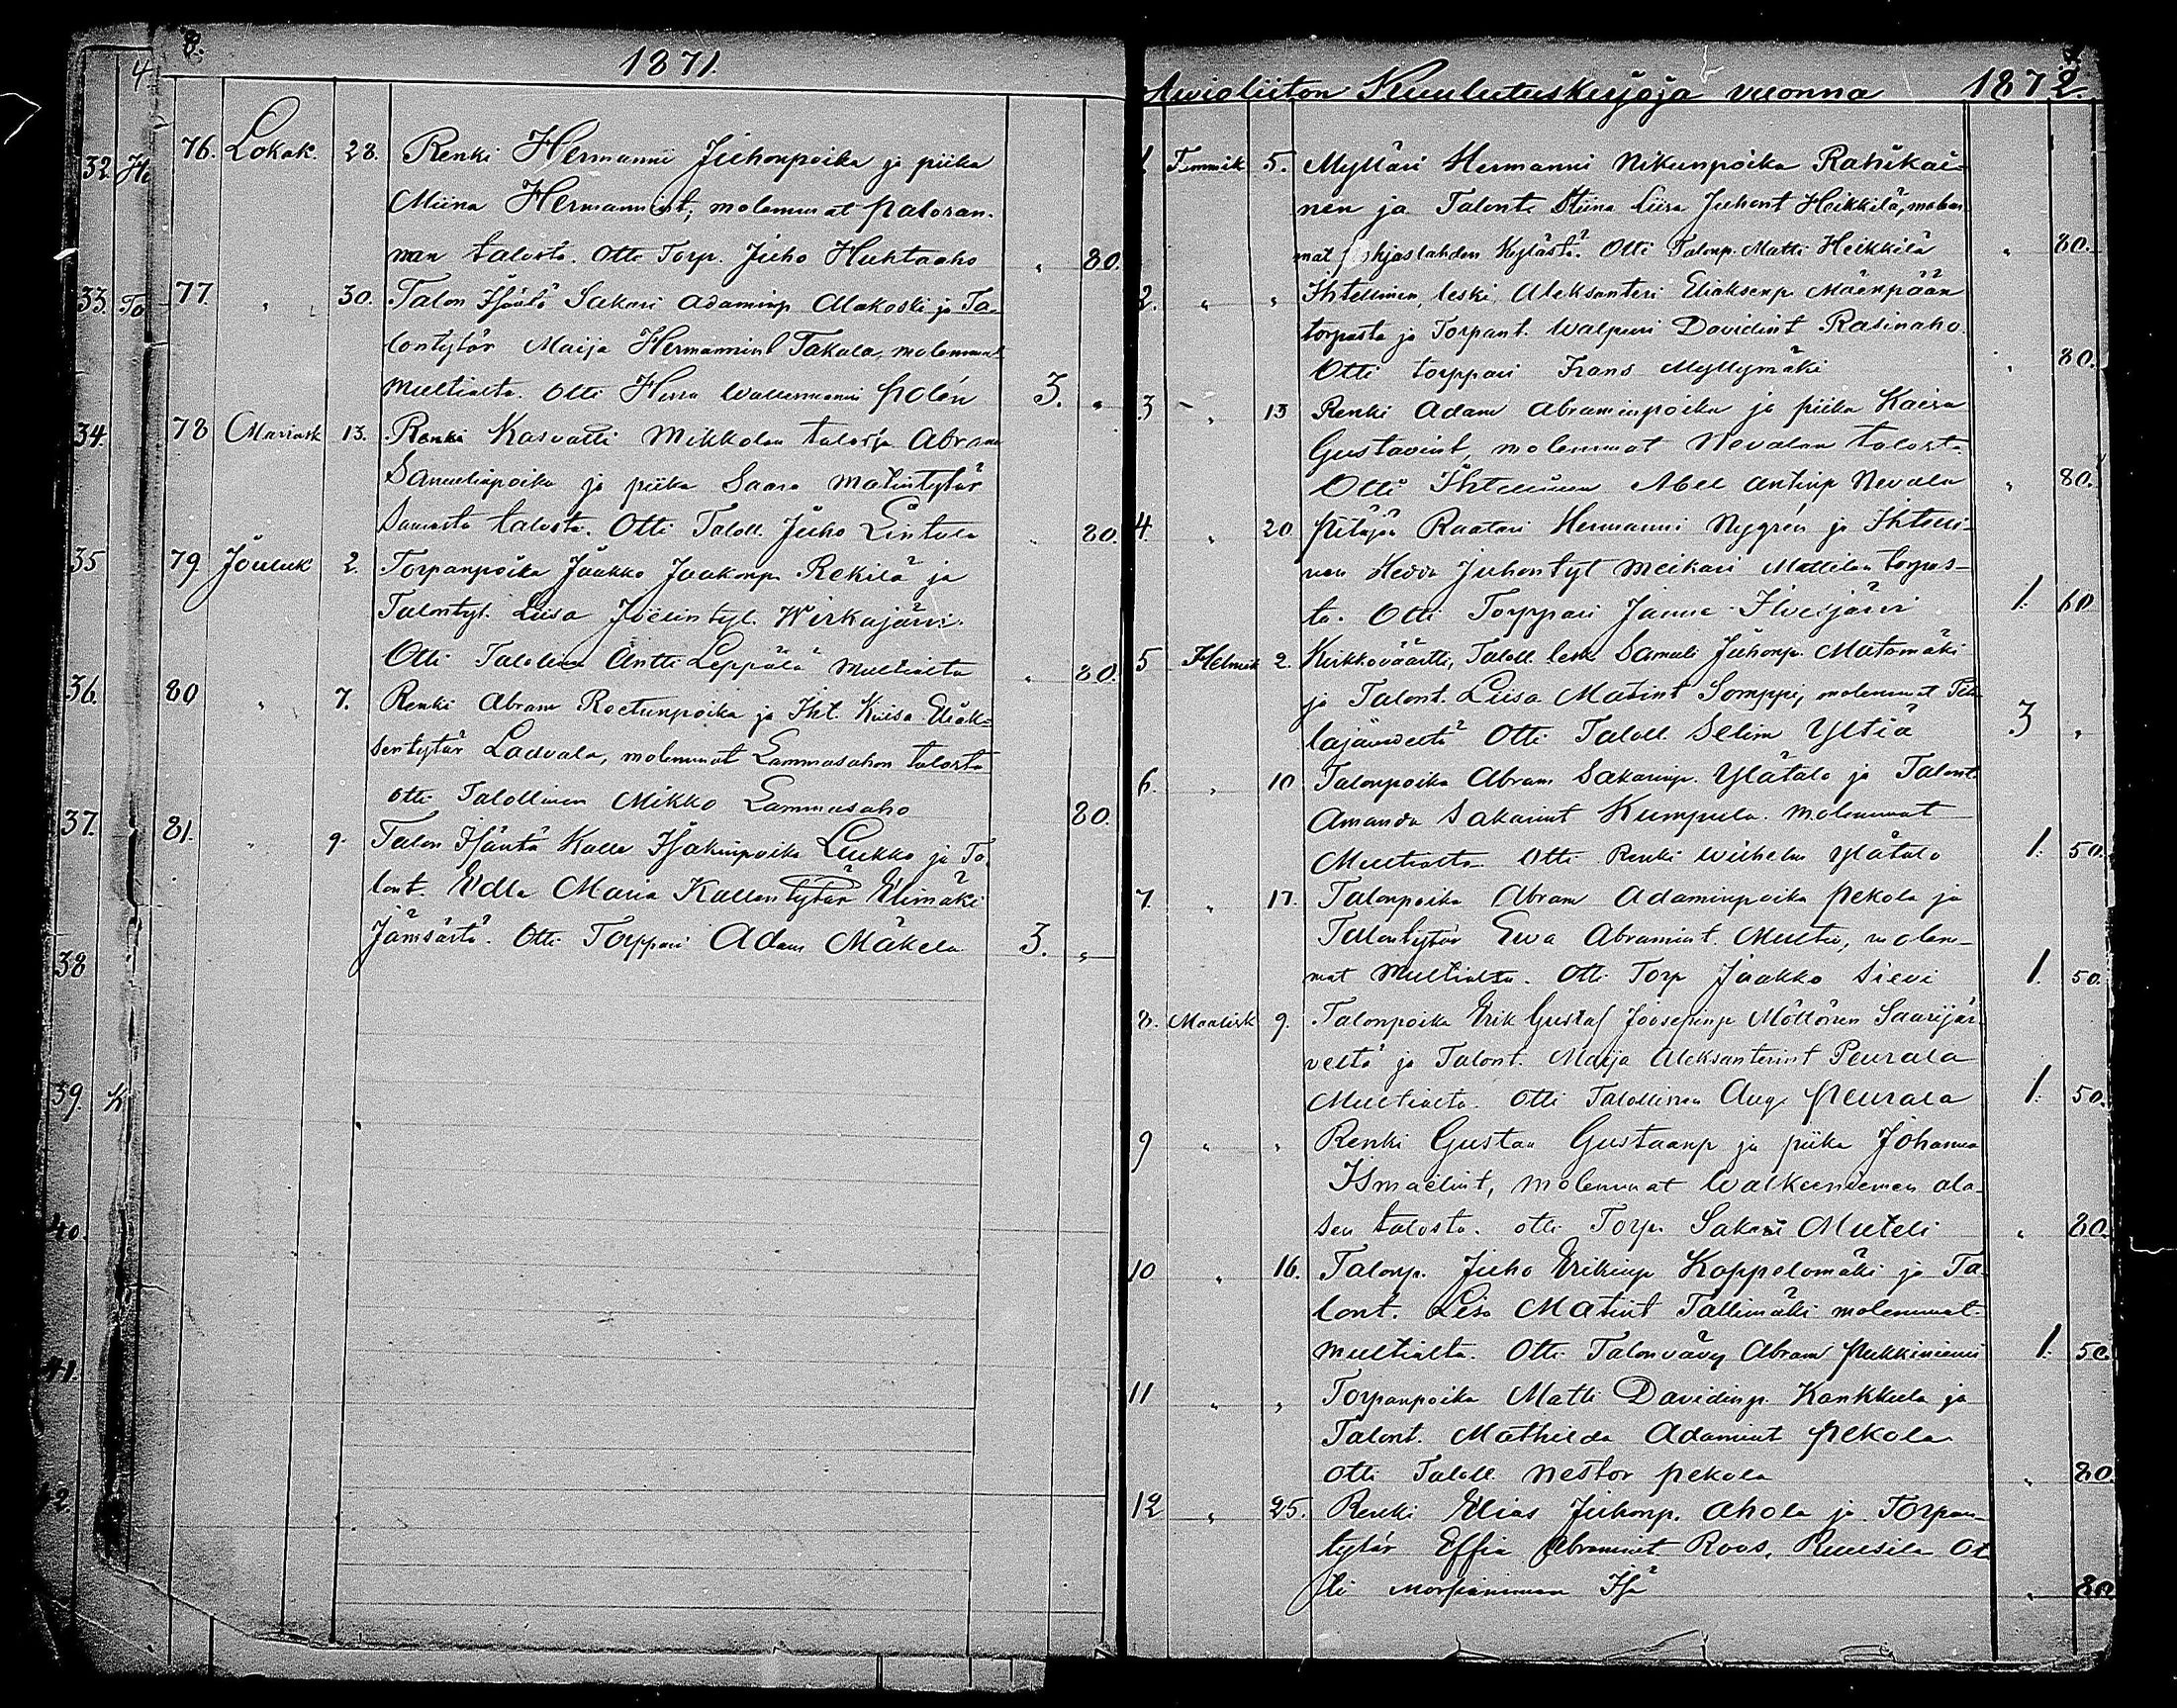 8.
1871.
76. Lokak. 28. Renki Hermanni Juhonpoika ja piika
Miina Hermannint, molemmat Paloran-
nan talosta. Otti Torp. Juho Huhtaaho „ 80.
77. „ 30. Talon Isäntä Sakari Adaminp Alakoski ja Ta-
lontytär Maija Hermannint Takala, molemmat
Multialta. Otti Herra Wallermanni Polén 3. „
78 Marrask 13. Renki Kasvatti Mikkolan talosta Abram
Samulinpoika ja piika Saara Matintytär
talosta. Otti Taloll. Juho Lintula „ 80.
79 Jouluk 2. Torpanpoika Jaakko Jaakonp. Rekilä ja
Talontyt. Liisa Joelintyt. Wirkajärvi.
Otti Talollinen Antti Leppälä Multialta „ 80.
80 „ 7. Renki Abram Roetunpoika ja Iht. Kaisa Eliak-
sentytär Ladvala, molemmat Lammasahon talosta
otti Talollinen Mikko Lammasaho 80.
81. „ 9. Talon Isäntä Kalle Isakinpoika Lukko ja Ta-
lont. Edla Maria Kallentytär Elimäki
Jämsästä. Otti Torppari Adam Mäkelä 3. „
32 33. To 34. 35 36. 37. 38 39. K 40. 41. 42.
Avioliiton Kuulutuskirjoja vuonna 1872.
1 Tammik 5. Mylläri Hermanni Nikunpoika Rahikai-
nen ja Talont. Stiina Liisa Juhont Heikkilä, molem
mat Pohjaslahden Kylästä. Otti Talonp. Matti Heikkilä „ 80.
2. „ „ Ihtellinen, leski Aleksanteri Eliaksenp Mäenpään
torpasta ja Torpant. Walpuri Davidint Rasinaho.
Otti torppari Frans Myllymäki „ 80.
3 „ 13 Renki Adam Abraminpoika ja piika Kaisa
Gustavint, molemmat Nevalan talosta
Otti Ihtellinen Abel Antinp Nevala „ 80.
4. „ 20 Pitäjän Raatari Hermanni Nygrén ja Ihtelli-
nen Hedda Juhontyt Meikari Mattilan torpas-
ta. Otti Torppari Janne Ilvesjärvi 1. 60
5 Helmik 2. Kirkkoväärtti, Taloll. lesk Samuli Juhonp. Matomäki
ja Talont. Liisa Matint Somppi, molemmat Pih
lajavedeltä Otti Taloll. Selim Yltiä 3 „
6. „ 10 Talonpoika Abram Sakarinp. Ylätalo ja Talont.
Amanda Sakarint Kumpula. molemmat
Multialta Otti Renki Wilhelm Ylätalo 1. 50.
7. „ 17. Talonpoika Abram Adaminpoika Pekola ja
Talontytär Ewa Abramint. Multia, molem-
mat Multialta. Otti Torp Jaakko Sievi 1. 50.
8. Maalisk 9. Talonpoika Erik Gustaf Joosepinp Möttönen Saarijär
veltä ja Talont. Maija Aleksanterint Peurala
Multialta. Otti Talollinen Aug. Peurala 1. 50.
9 „ „ Renki Gustaa Gustaanp ja piika Johanna
Ismaelint, molemmat Walkeeniemen ala-
sen talosta. otti Torp. Sakari Muteli „ 80.
10 „ 16. Talonp. Juho Erikinp Koppelomäki ja Ta-
lont. Lisa Matint Tallimäki molemmat
Multialta. Otti Talonvävy Abram Pukkiniemi 1. 50.
11 „ „ Torpanpoika Matti Davidinp. Kankkula ja
Talont. Mathilda Adamint Pekola
otti Taloll. Nestor Pekola „ 80.
12 „ 25. Renki Elias Juhonp. Ahola ja Torpan-
tytär Effia Abramint Roos, Ruusila Ot-
ti morsiamman Isä „ 80.